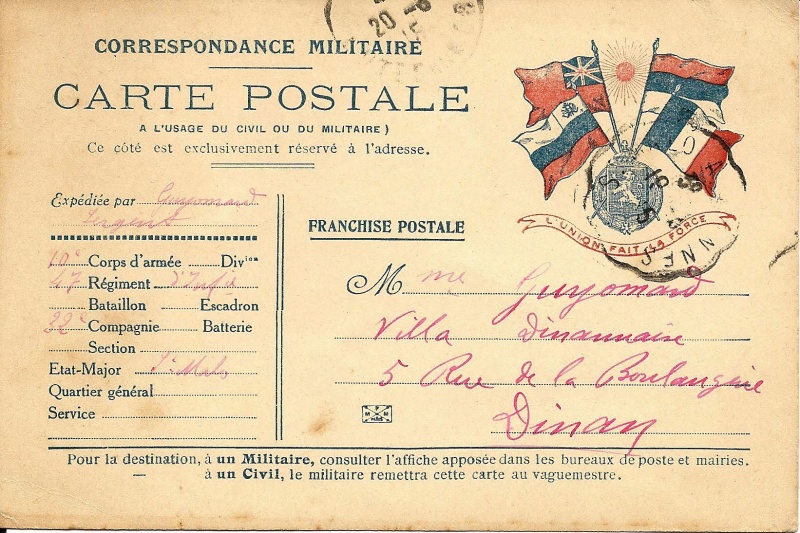 CORRESPONDANCE MILITAIRE
CARTE POSTALE
A L'USAGE DU CIVIL OU DU MILITAIRE)
Ce côté est exclusivement réservé à l'adresse.
L'UNION FAIT LA FORCE
Expédiée par Guyomard
Sergent
10e Corps d'armée Divion
47 Régiment d'Infie
Bataillon Escadron
22e Compagnie Batterie
Section
Etat-Major St Malo
Quartier général
Service
FRANCHISE POSTALE
Mme Guyomard
Villa Dinannaise
5 Rue de la Boulangerie
Dinan
Pour la destination, à un Militaire, consulter l'affiche apposée dans les bureaux de poste et mairies.
— à un Civil, le militaire remettra cette carte au vaguemestre.